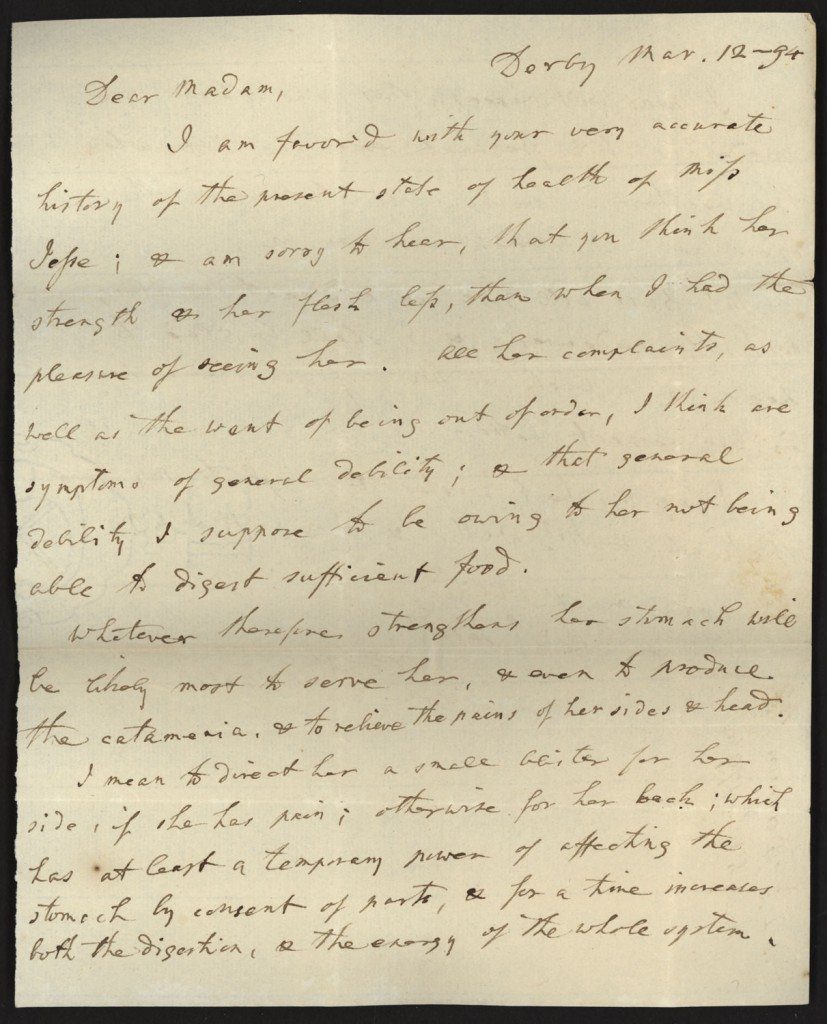 Derby Mar. 12-94
Dear Madam,
I am favor'd with your very accurate
history of the present state of health of Miſs
Jeſse; & am sorry to hear, that you think her
strength & her flesh leſs, than when I had the
pleasure of seeing her. All her complaints, as
well as the want of being out of order, I think are
symptoms of general debility; & that general
debility I suppose to be owing to her not being
able to digest sufficient food.
Whatever therefore strengthens her stomach will
be likely most to serve her, & even to produce
the catamenia, & to relieve the pains of her sides & head.
I mean to direct her a small blister for her
side, if she has pain; otherwise for her back; which
has at least a temporary power of affecting the
stomach by consent of parts, & for a time increases
both the digestion, & the energy of the whole system.